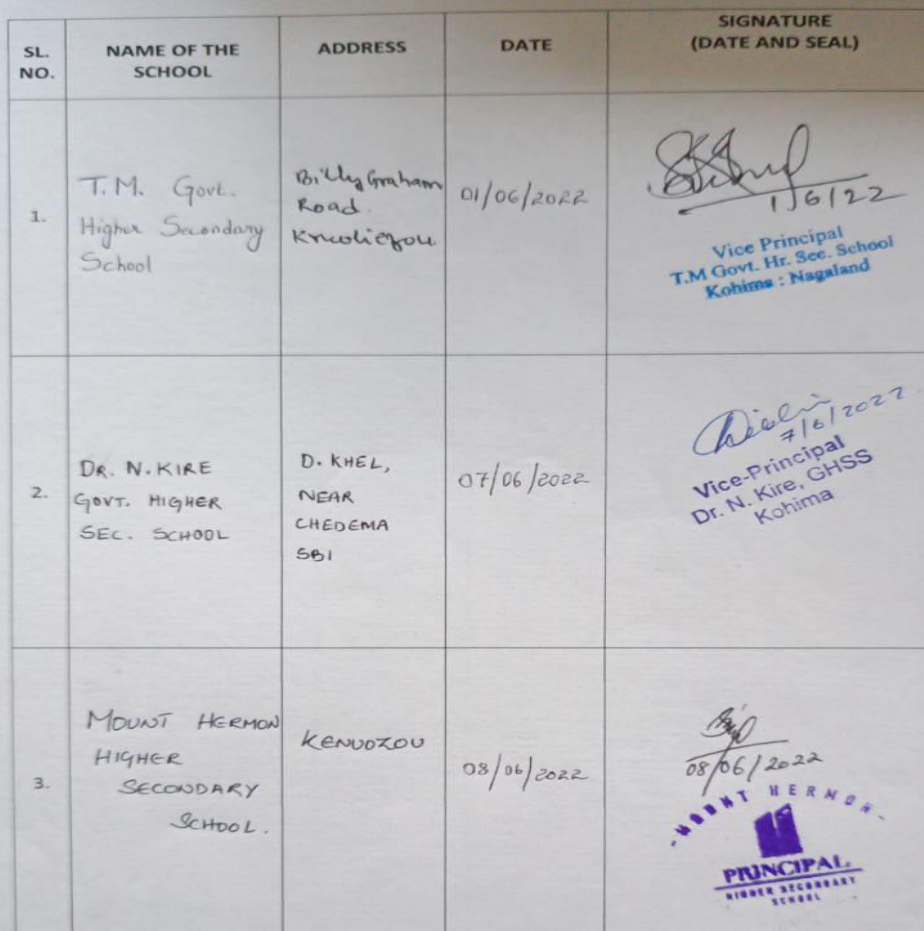 SL. NO.
NAME OF THE SCHOOL
ADDRESS
DATE
SIGNATURE
(DATE AND SEAL)
1.
T.M. Govt.
Higher Secondary
School
Billy Graham
Road.
01/06/2022
1/6/22
Vice Principal
T.M Govt. Hr. Sec. School
Kohima : Nagaland
2.
DR. N. KIRE
GOVT. HIGHER
SEC. SCHOOL
D. KHEL,
NEAR
CHEDEMA
SBI
07/06/2022
7/6/2022.
Vice-Principal
Dr. N. Kire, GHSS
Kohima
3.
MOUNT HERMON
HIGHER
SECONDARY
SCHOOL.
KENUOZOU
08/06/2022
08/06/2022
- MOUNT HERMON -
PRINCIPAL
HIGHER SECONDARY
SCHOOL